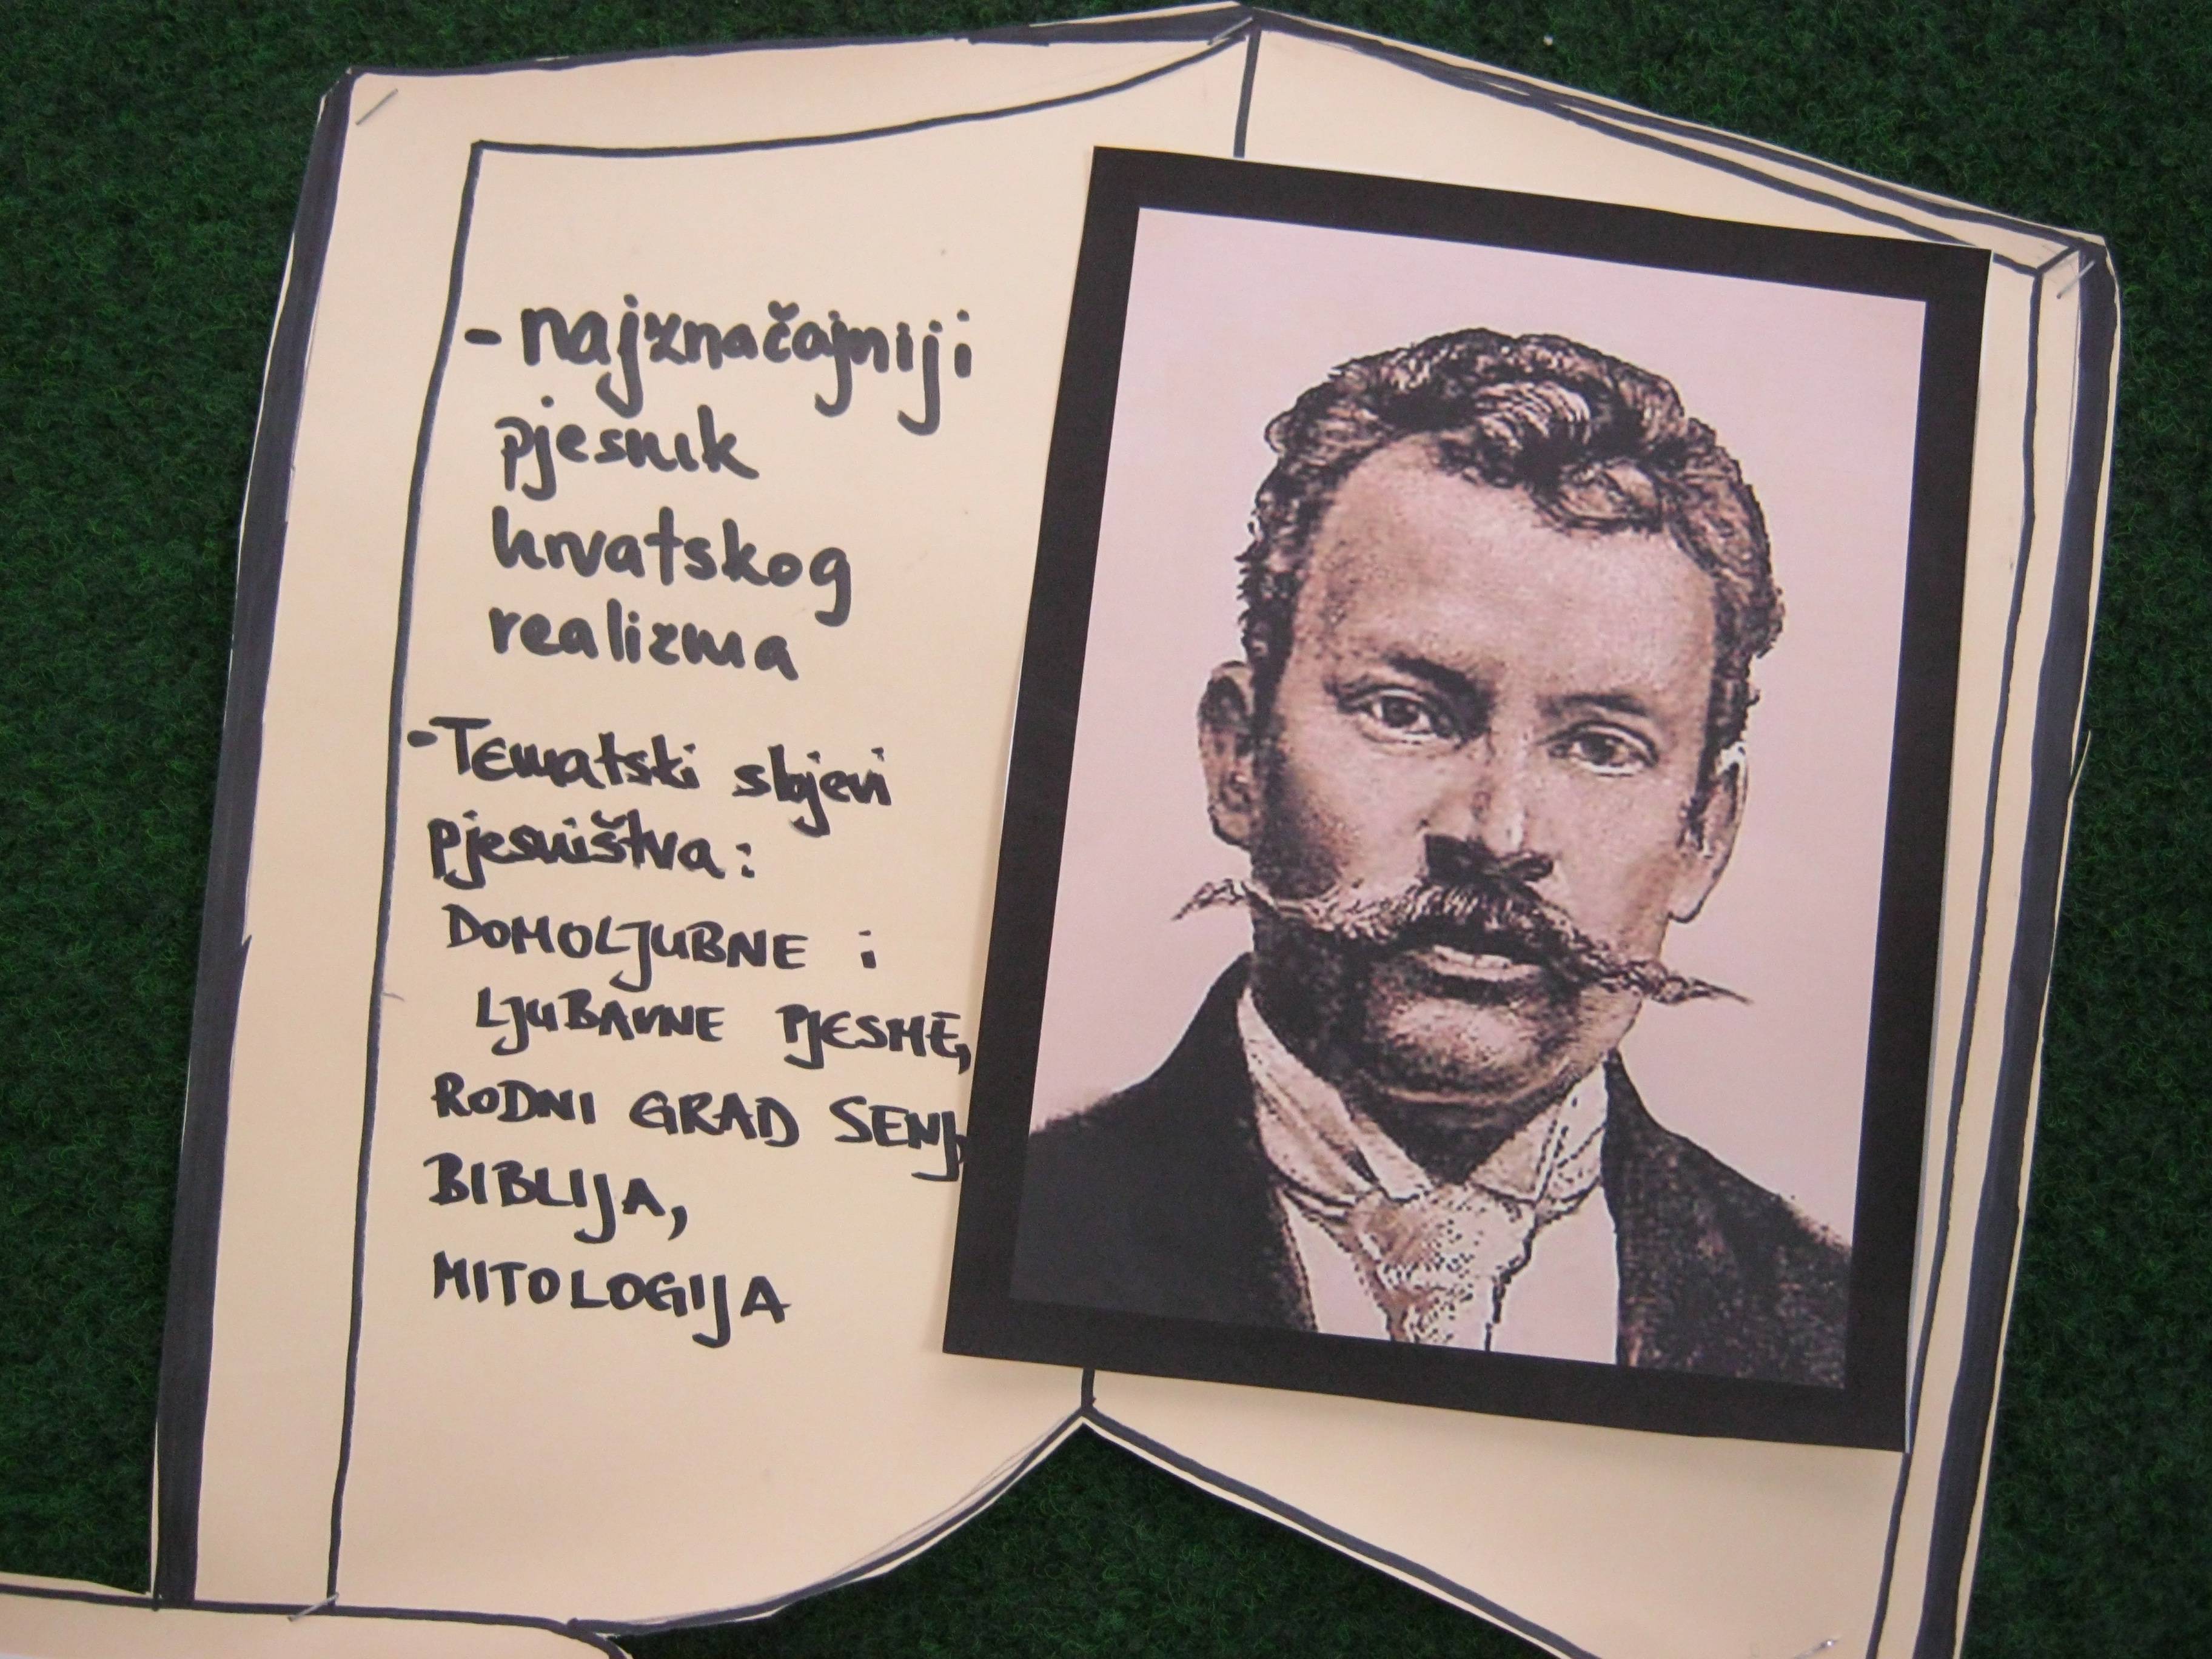 - najznačajniji
pjesnik
hrvatskog
realizma
- Tematski slojevi
pjesništva:
DOMOLJUBNE i
LJUBAVNE PJESME,
RODNI GRAD SENJ,
BIBLIJA,
MITOLOGIJA